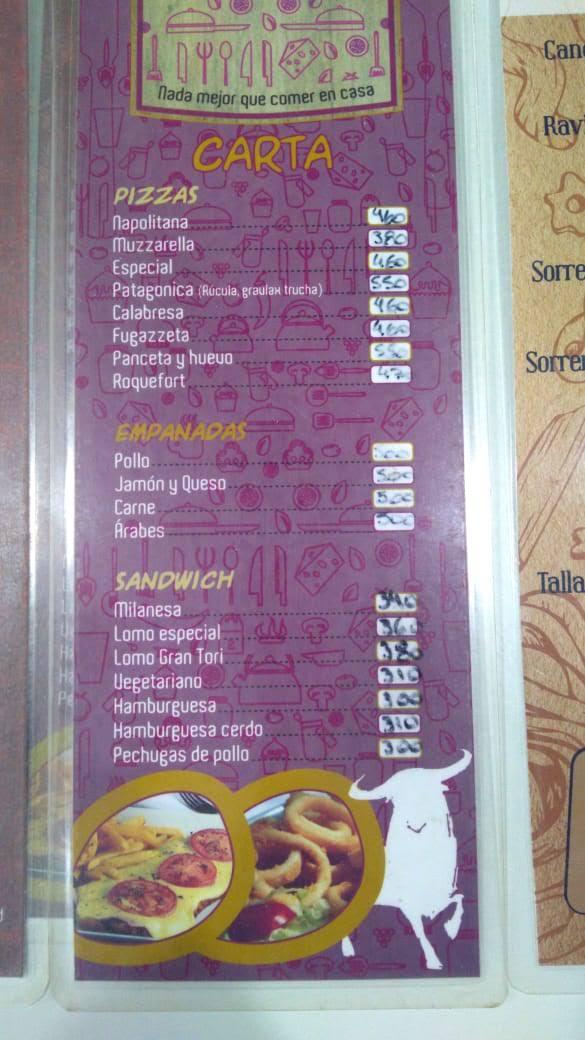 Nada mejor que comer en casa
CARTA
PIZZAS
Napolitana 460
Muzzarella 380
Especial 460
Patagonica (Rúcula, graulax trucha) 550
Calabresa 460
Fugazzeta 460
Panceta y huevo 550
Roquefort
EMPANADAS
Pollo
Jamón y Queso 500
Carne 500
Árabes 500
SANDWICH
Milanesa 340
Lomo especial 360
Lomo Gran Tori 380
Vegetariano 310
Hamburguesa
Hamburguesa cerdo 310
Pechugas de pollo 300
Sorre
Talla